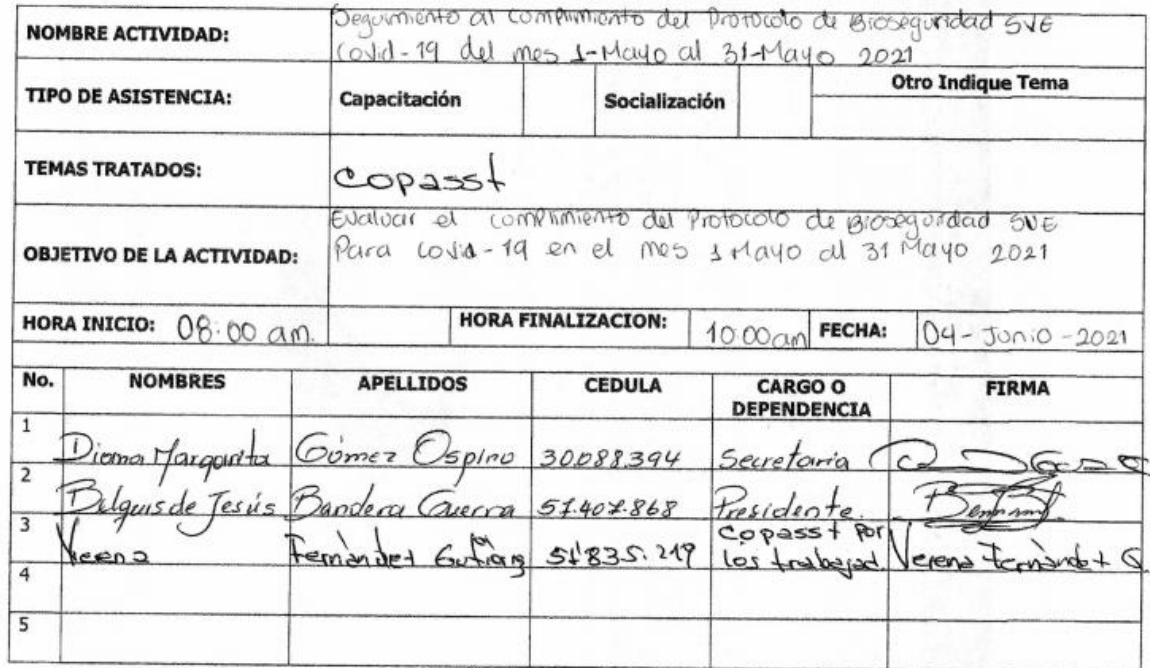 NOMBRE ACTIVIDAD: Seguimiento al cumplimiento del Protocolo de Bioseguridad SVE
Covid-19 del mes 1-Mayo al 31-Mayo 2021
TIPO DE ASISTENCIA: Capacitación Socialización Otro Indique Tema
TEMAS TRATADOS: Copasst
OBJETIVO DE LA ACTIVIDAD: Evaluar el cumplimiento del Protocolo de Bioseguridad SVE
Para Covid-19 en el mes 1 Mayo al 31 Mayo 2021
HORA INICIO: 08:00 am. HORA FINALIZACION: 10:00am FECHA: 04-Junio-2021
No. NOMBRES APELLIDOS CEDULA CARGO O DEPENDENCIA FIRMA
1 Diana Margarita Gómez Ospino 30.088.394 Secretaria
2 de Jesús Bandera Guerra 57.407.868 Presidente.
3 Fernández 51'835.219 Copasst por
los trabajad. Verena Fernández G.
4
5